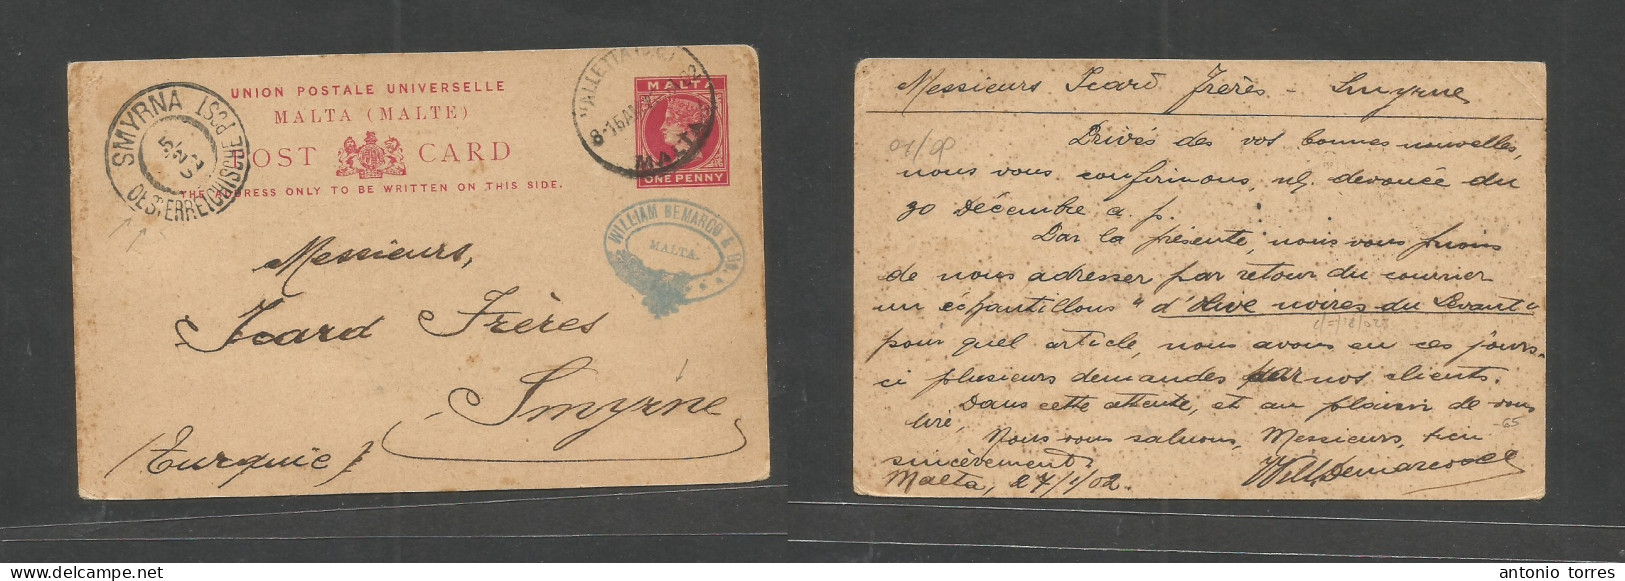 UNION POSTALE UNIVERSELLE
MALTA (MALTE)
POST CARD
THE ADDRESS ONLY TO BE WRITTEN ON THIS SIDE.
MALTA
ONE PENNY
VALLETTA
8-15AM
MALTA
SMYRNA
OESTERREICHISCHE POST
WILLIAM DEMARCO & Co.
MALTA
Messieurs,
Icard Frères
Smyrne
(Turquie)
Messieurs Icard Frères - Smyrne
Privés de vos bonnes nouvelles,
nous vous confirmons, n/. devancée du
30 Décembre a. p.
Par la présente, nous vous prions
de nous adresser par retour du courrier
un échantillons "d'Olive noires du Levant"
pour quel article, nous avons eu ces jours-
ci plusieurs demandes par nos clients.
Dans cette attente, et au plaisir de vous
lire,
Nous vous saluons, Messieurs, bien
sincèrement.
Malta, 27/1/02.
Will. Demarco & Co
antonio torres